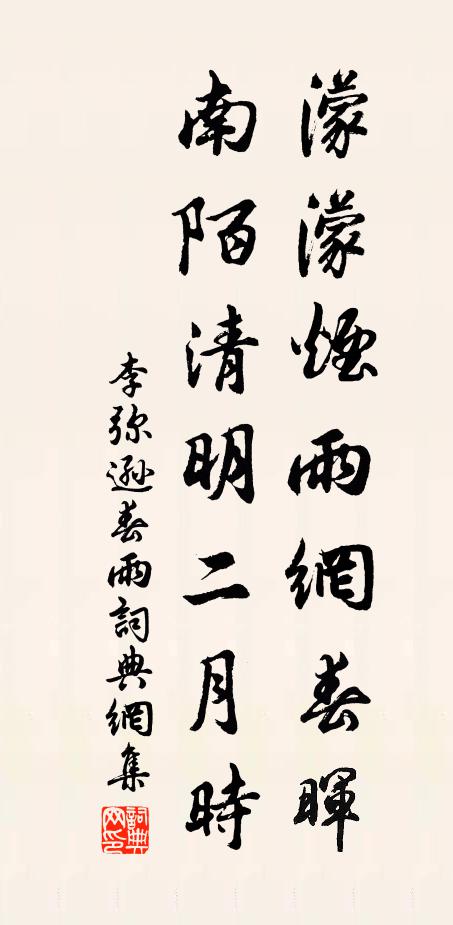 濛濛煙雨網春暉
南陌清明二月時
李弥遜春雨詞典網集
詞典網印